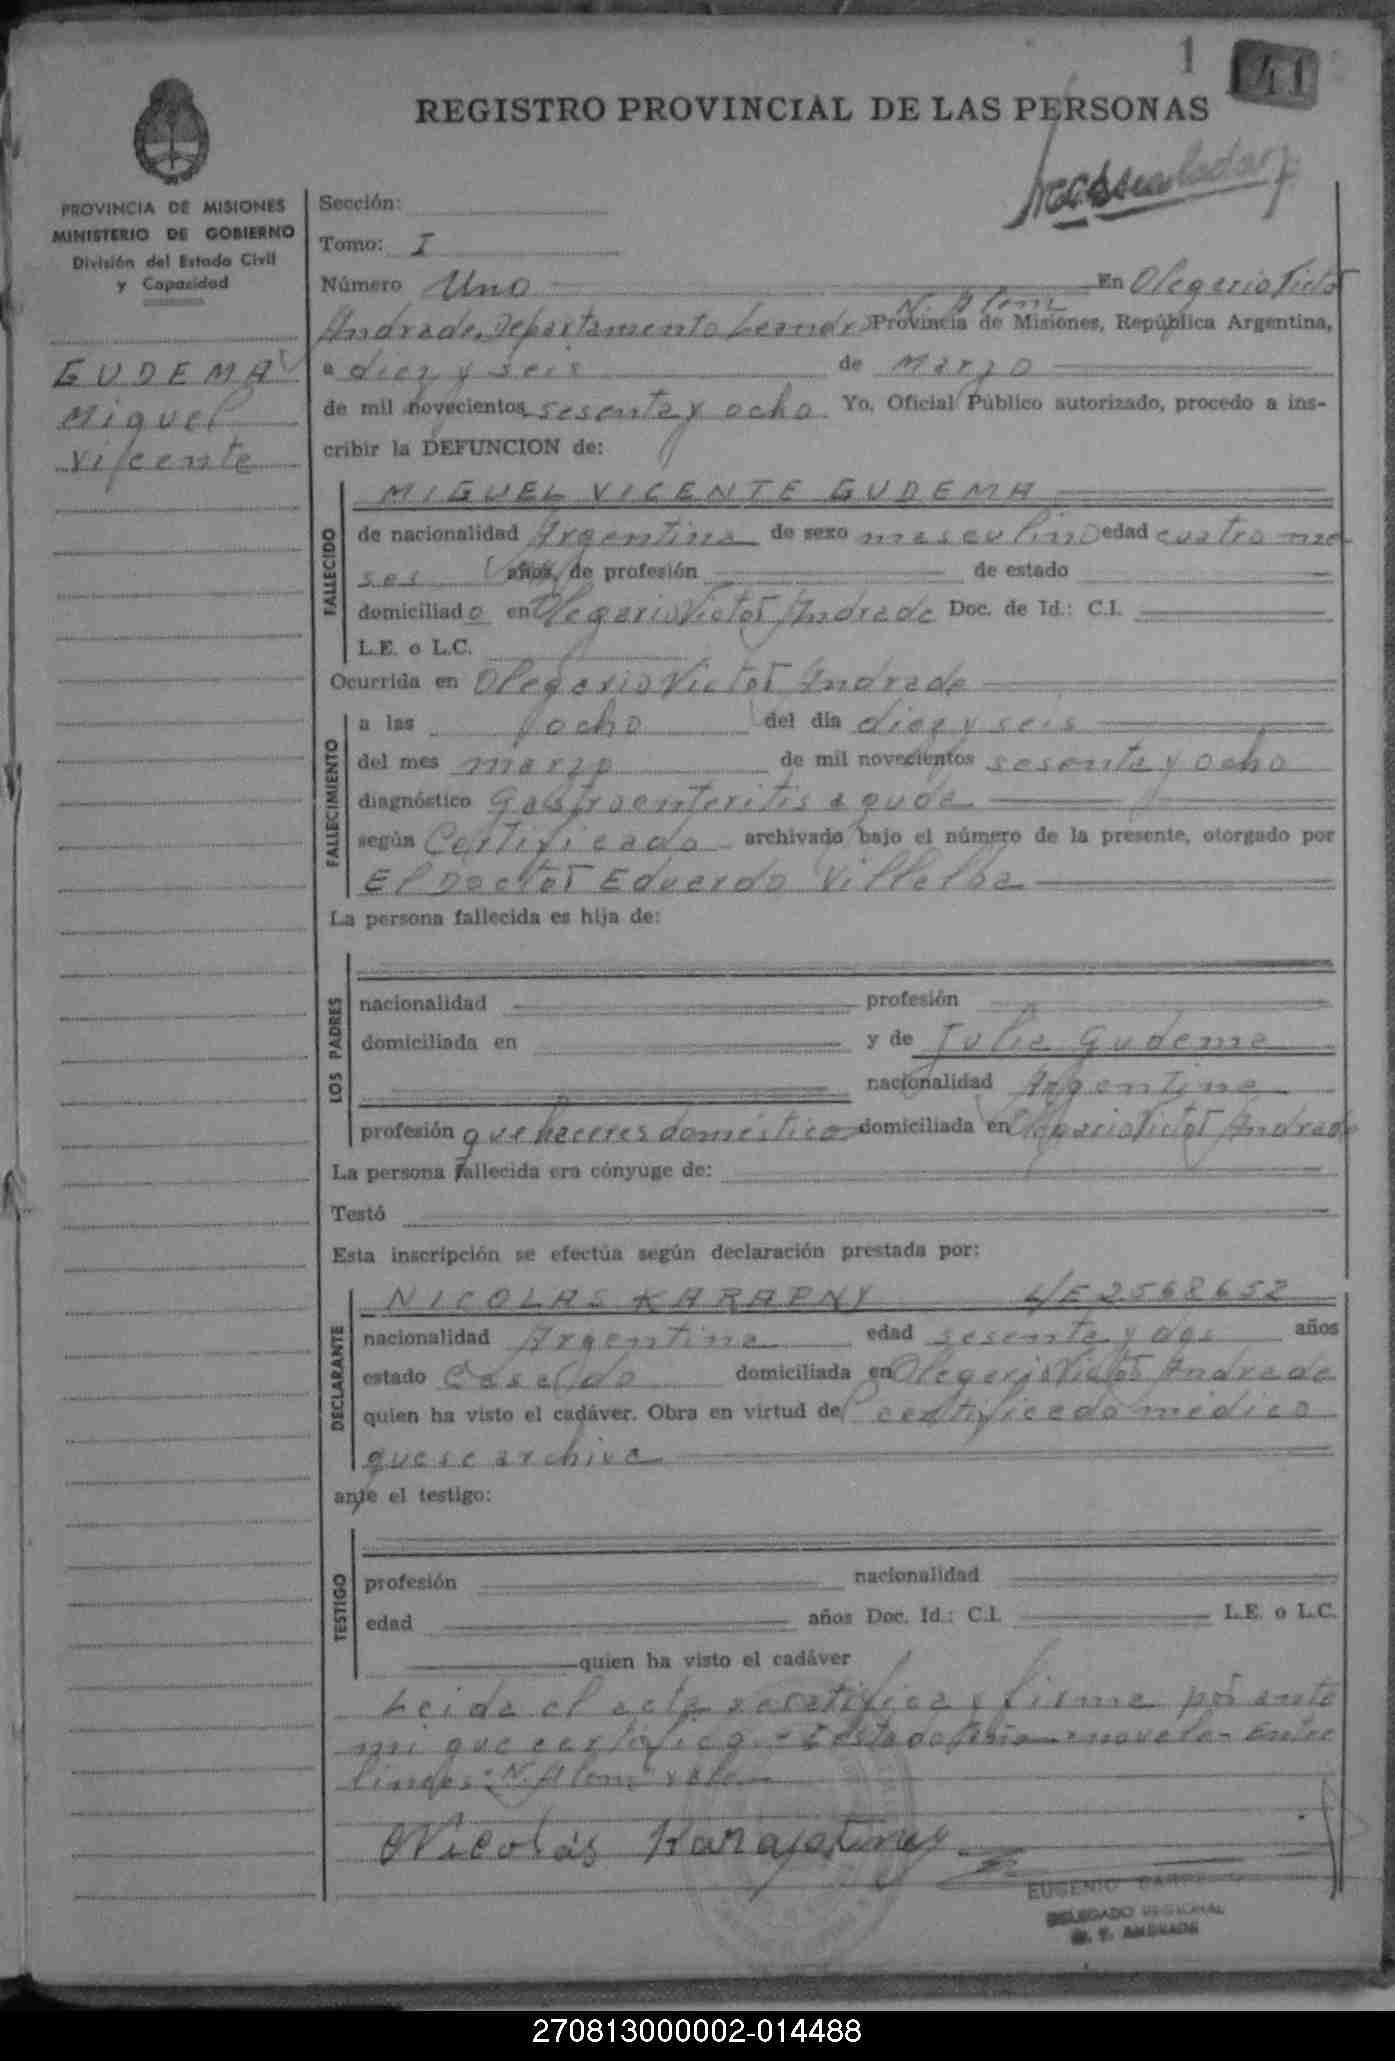 1 141
REGISTRO PROVINCIAL DE LAS PERSONAS
PROVINCIA DE MISIONES
MINISTERIO DE GOBIERNO
División del Estado Civil
y Capacidad
GUDEMA
Miguel
Vicente
Sección:
Tomo: I
Número Uno En Olegario Victor
Andrade, Departamento Leandro N. Alem Provincia de Misiones, República Argentina,
a diez y seis de Marzo
de mil novecientos sesenta y ocho Yo, Oficial Público autorizado, procedo a ins-
cribir la DEFUNCION de:
FALLECIDO
MIGUEL VICENTE GUDEMA
de nacionalidad Argentina de sexo masculino edad cuatro me-
ses años, de profesión de estado
domiciliado en Olegario Victor Andrade Doc. de Id.: C.I.
L.E. o L.C.
Ocurrida en Olegario Victor Andrade
FALLECIMIENTO
a las ocho del día diez y seis
del mes marzo de mil novecientos sesenta y ocho
diagnóstico Gastroenteritis aguda
según Certificado archivado bajo el número de la presente, otorgado por
El Doctor Eduardo Villalba
La persona fallecida es hija de:
LOS PADRES
nacionalidad profesión
domiciliada en y de Julia Gudema
nacionalidad Argentina
profesión quehaceres domésticos domiciliada en Olegario Victor Andrade
La persona fallecida era cónyuge de:
Testó
Esta inscripción se efectúa según declaración prestada por:
DECLARANTE
NICOLAS L/E 2568652
nacionalidad Argentina edad sesenta y dos años
estado Casado domiciliada en Olegario Victor Andrade
quien ha visto el cadáver. Obra en virtud del certificado médico
que se archiva
ante el testigo:
TESTIGO
profesión nacionalidad
edad años Doc. Id.: C.I. L.E. o L.C.
quien ha visto el cadáver
Leida el acta se ratifica y firma por ante
mi que certifico.- Entre
lineas: N. Alem: vale
Nicolás
EUGENIO
DELEGADO REGIONAL
O. V. ANDRADE
270813000002-014488